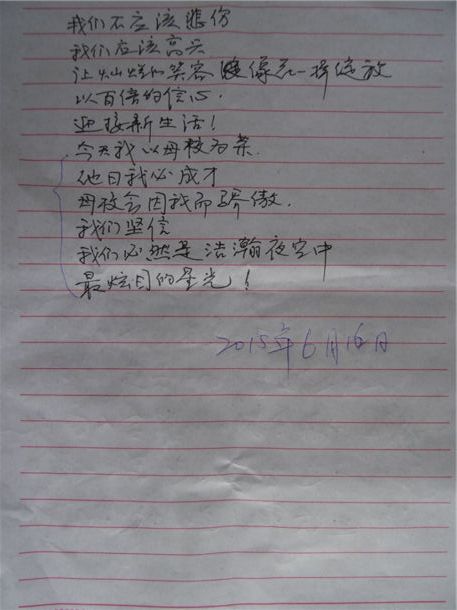 我们不应该悲伤
我们应该高兴
让灿烂的笑容像花一样绽放
以百倍的信心
迎接新生活！
今天我以母校为荣.
他日我必成才
母校会因我而骄傲.
我们坚信
我们必然是浩瀚夜空中
最炫目的星光！
2015年6月16日